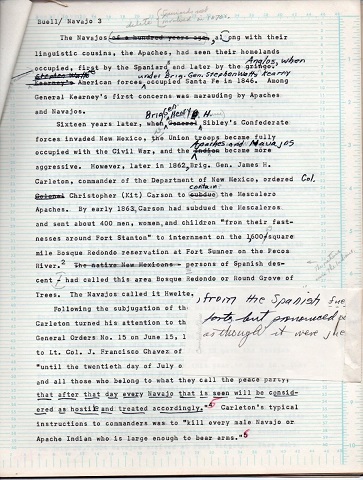 Buell/ Navajo 3
The Navajos of a hundred years ago, along with their
linguistic cousins, the Apaches, had seen their homelands
Anglos, when
occupied, first by the Spaniards and later by the gringo.
under Brig. Gen. Stephen Watts Kearny
Kearny's American forces occupied Santa Fe in 1846. Among
General Kearney's first concerns was marauding by Apaches
and Navajos.
Brig. Gen. Henry H.
Sixteen years later, when General Sibley's Confederate
forces invaded New Mexico, the Union troops became fully
Apaches and Navajos
occupied with the Civil War, and the Indian became more
aggressive. However, later in 1862, Brig. Gen. James H.
Carleton, commander of the Department of New Mexico, ordered Col.
contain
Colonel Christopher (Kit) Carson to subdue the Mescalero
Apaches. By early 1863, Carson had subdued the Mescaleros
and sent about 400 men, women, and children "from their fast-
nesses around Fort Stanton" to internment on the 1,600-square
mile Bosque Redondo reservation at Fort Sumner on the Pecos
River.2 The native New Mexicans - persons of Spanish des-
cent - had called this area Bosque Redondo or Round Grove of
Trees. The Navajos called it Hwelte.
from the Spanish
but pronounced
as though it were
Following the subjugation of th
Carleton turned his attention to th
General Orders No. 15 on June 15, 1
to Lt. Col. J. Francisco Chavez of
"until the twentieth day of July o
and all those who belong to what they call the peace party;
that after that day every Navajo that is seen will be consid-
ered as hostile and treated accordingly."5 Carleton's typical
instructions to commanders was to "kill every male Navajo or
Apache Indian who is large enough to bear arms."6